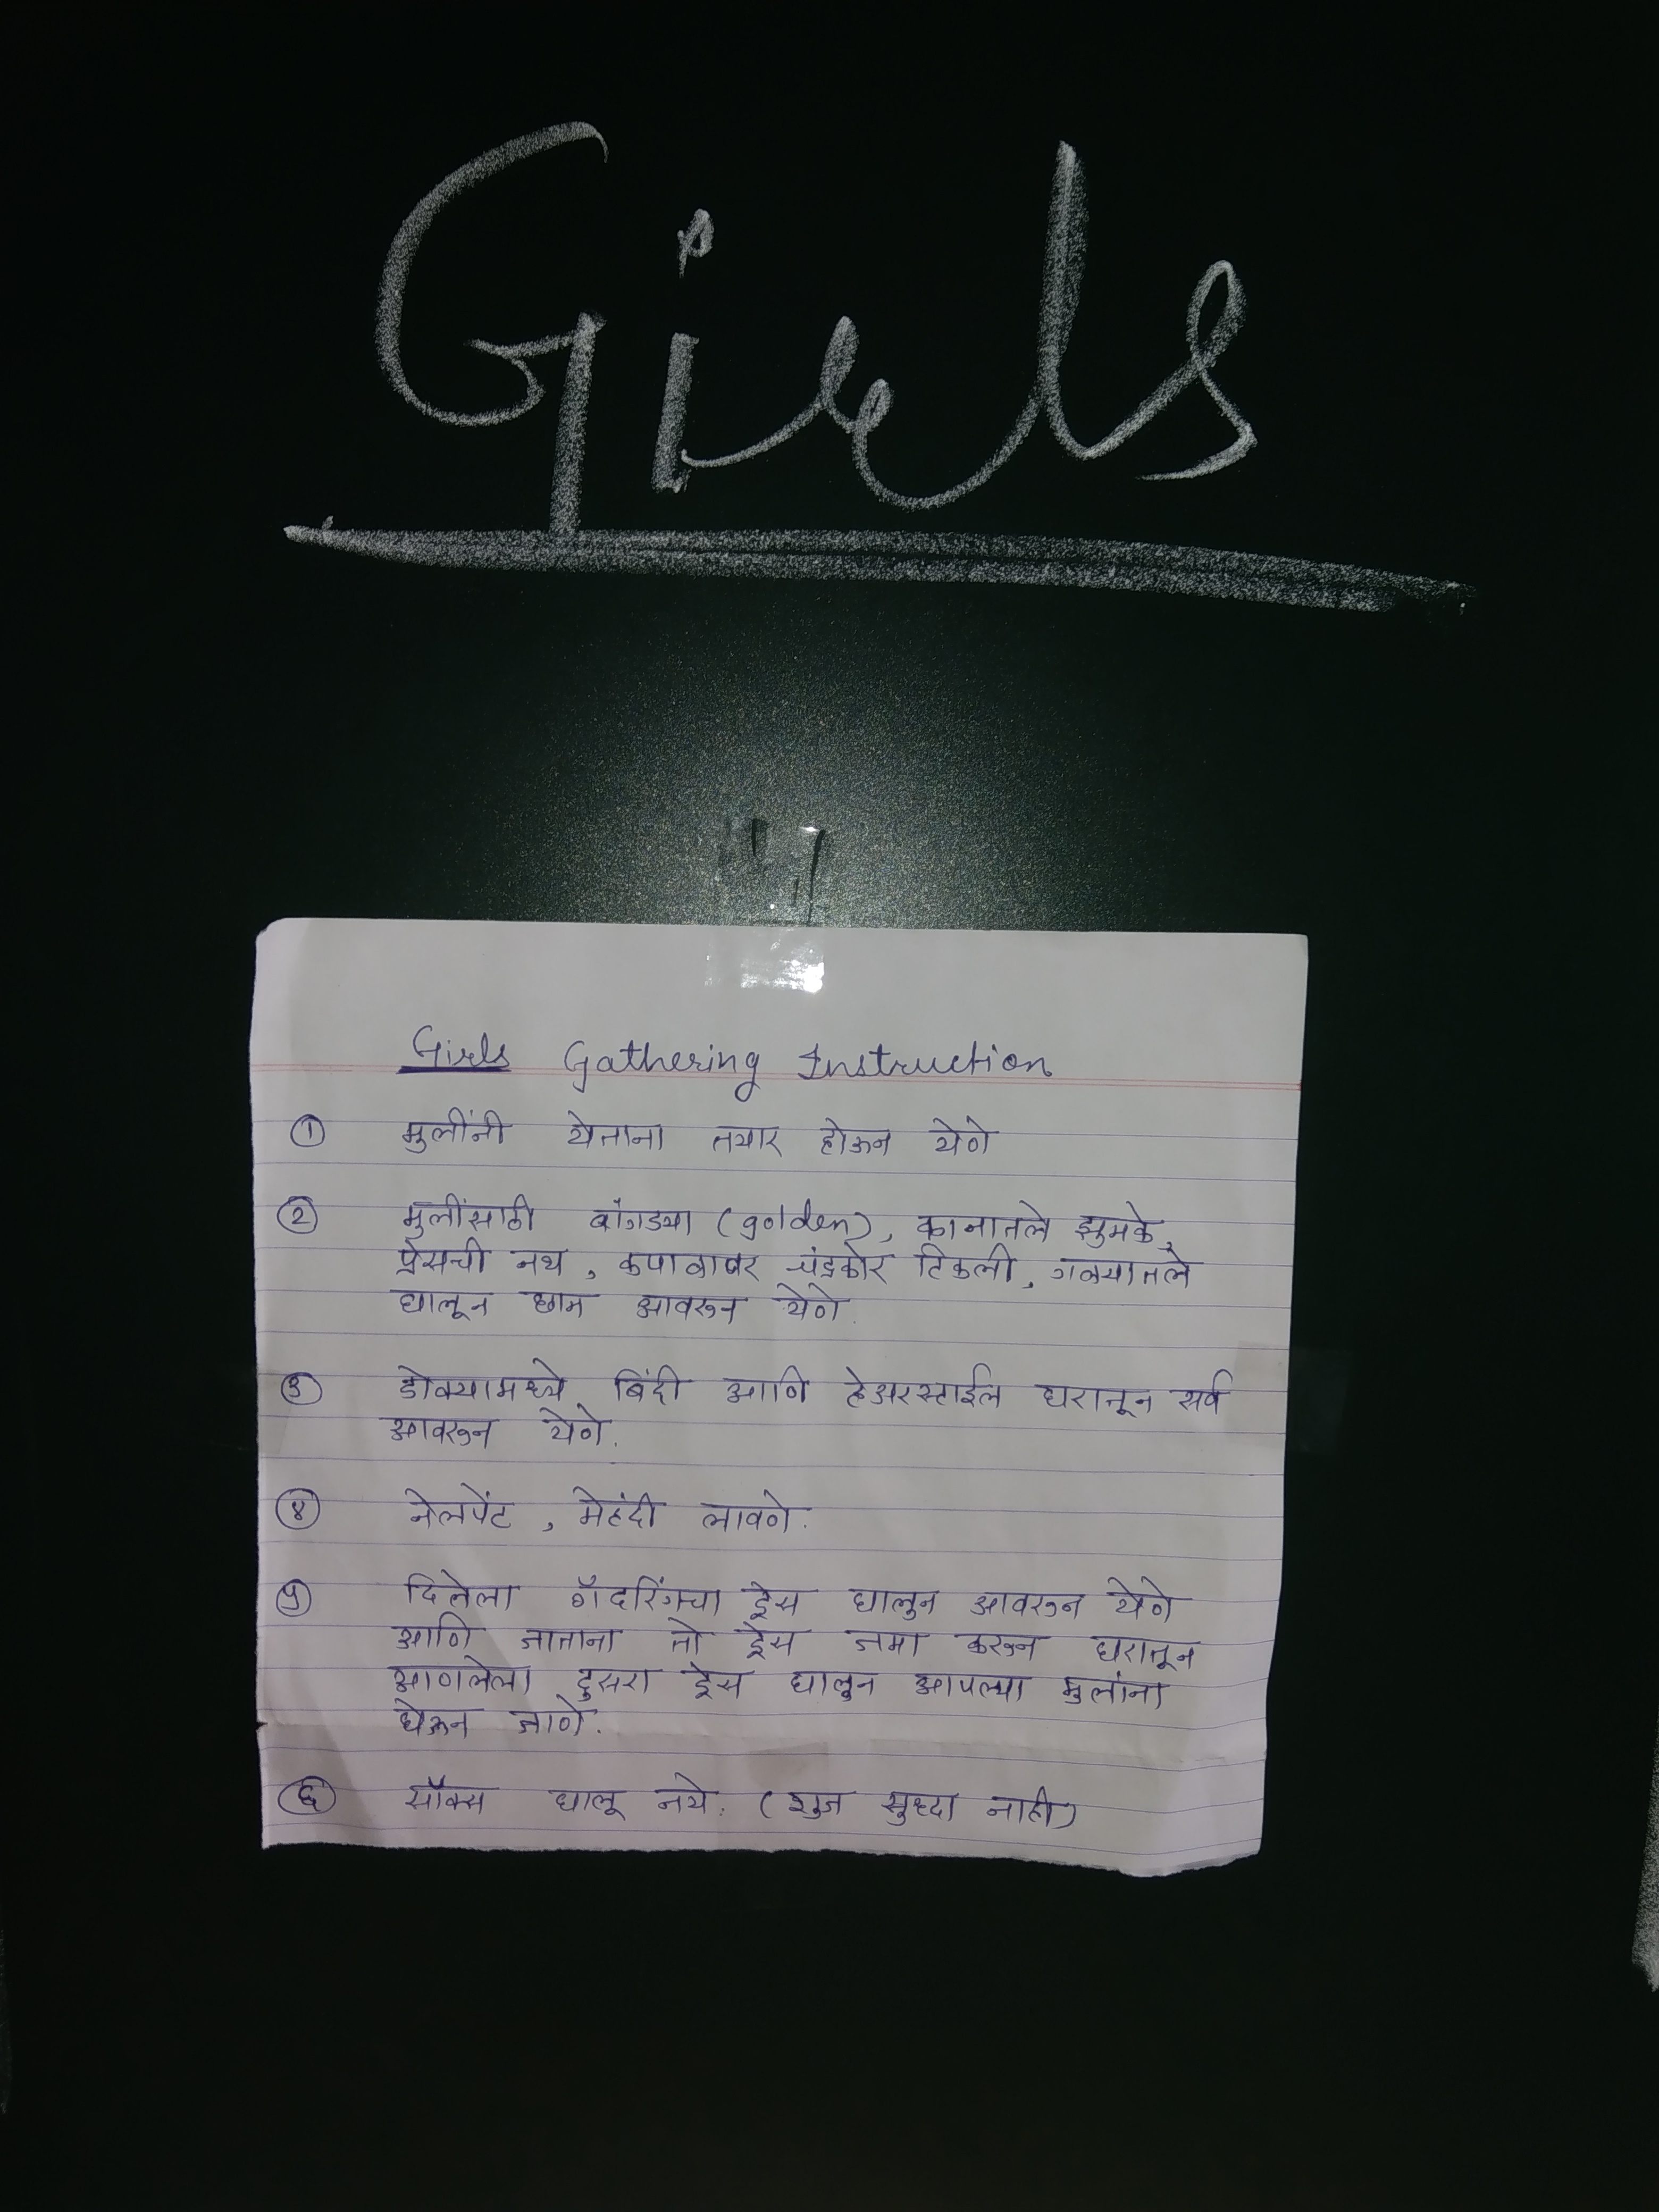 Girls
Girls Gathering Instruction
① मुलींनी येताना तयार होऊन येणे
② मुलींसाठी बांगड्या (golden), कानातले झुमके,
प्रेसची नथ, कपाळावर चंद्रकोर टिकली, गळ्यातले
घालून छान आवरून येणे.
③ डोक्यामध्ये बिंदी आणि हेअरस्टाईल घरातून सर्व
आवरून येणे.
④ नेलपेंट, मेहंदी लावणे.
⑤ दिलेला गॅदरिंगचा ड्रेस घालून आवरून येणे
आणि जाताना तो ड्रेस जमा करून घरातून
आणलेला दुसरा ड्रेस घालून आपल्या मुलांना
घेऊन जाणे.
⑥ सॉक्स घालू नये. (शुज सुध्दा नाही)